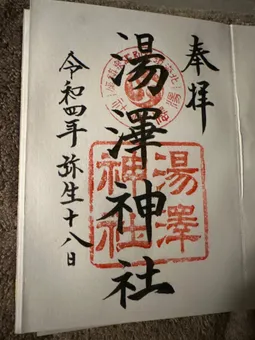 奉拝
湯澤神社
湯澤
神社
令和四年 弥生十八日